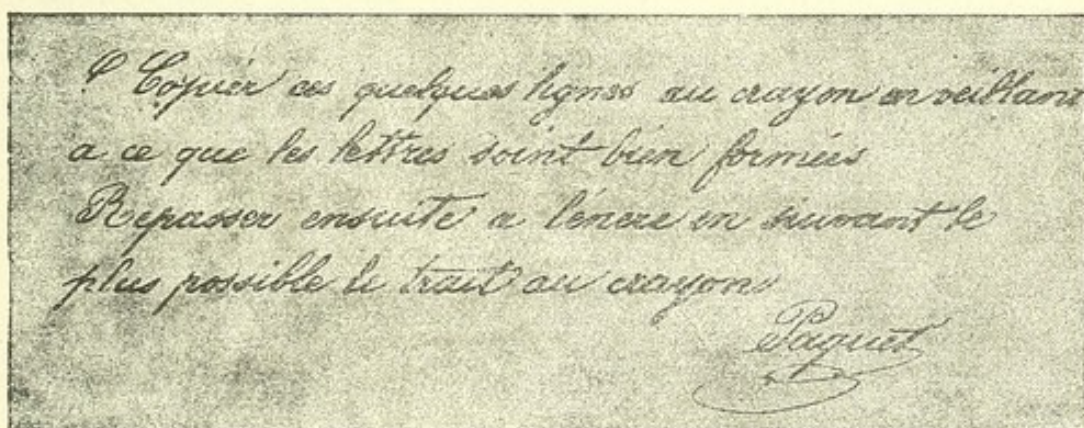 Copier ces quelques lignes au crayon en veillant
a ce que les lettres soint bien formées
Repasser ensuite a l'encre en suivant le
plus possible le trait au crayon
Paquet